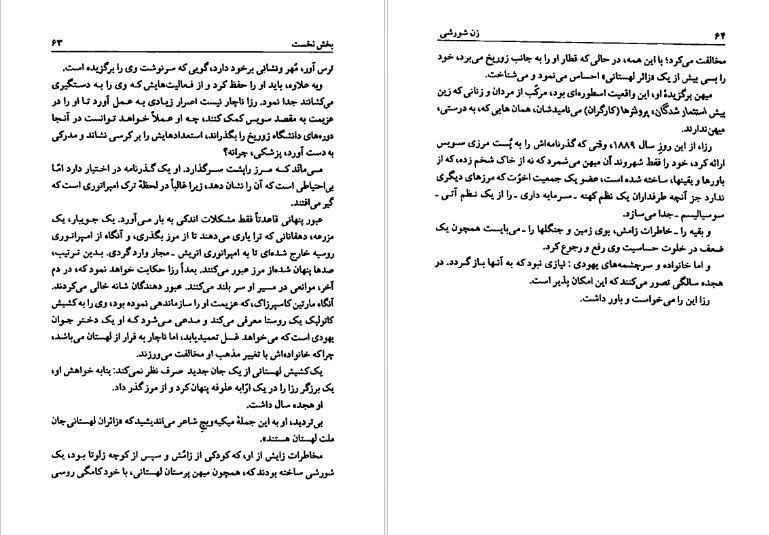 بخش نخست ۶۳
ترس آور، مُهر ونشانی برخود دارد، گویی که سرنوشت وی را برگزیده است.
وبه علاوه، باید او را حفظ کرد و از فعالیت‌هایش که وی را به دستگیری
می‌کشانند جدا نمود. رزا ناچار نیست اصرار زیادی به عمل آورد تا او را در
عزیمت به مقصد سویس کمک کنند، چه او عملاً خواهد توانست در آنجا
دوره‌های دانشگاه زوریخ را بگذراند، استعدادهایش را بر کرسی نشاند و مدرکی
به دست آورد، پزشکی، چرانه؟
می‌ماند که مرز راپشت سرگذارد. او یک گذرنامه در اختیار دارد امّا
بی‌احتیاطی است که آن را نشان دهد، زیرا غالباً در لحظهٔ ترک امپراتوری است که
گیر می‌افتند.
عبور پنهانی قاعدتاً فقط مشکلات اندکی به بار می‌آورد. یک جویبار، یک
مزرعه، دهقانانی که ترا یاری می‌دهند تا از مرز بگذری، و آنگاه از امپراتوری
روسیه خارج شده‌ای تا به امپراتوری اتریش ـ مجار وارد گردی. بدین ترتیب،
صدها پنهان شده‌از مرز عبور می‌کنند. بعداً رزا حکایت خواهد نمود که، در دم
آخر، موانعی در مسیر او سر بلند می‌کنند. عبور دهندگان شانه خالی می‌کردند.
آنگاه مارتین کاسپرزاک، که عزیمت او را سازماندهی نموده بود، وی را به کشیش
کاتولیک یک روستا معرفی می‌کند و مدعی می‌شود که او یک دختر جوان
یهودی است که می‌خواهد غسل تعمیدیابد، اما ناچار به فرار از لهستان می‌باشد،
چراکه خانواده‌اش با تغییر مذهب او مخالفت می‌ورزند.
یک کشیش لهستانی از یک جان جدید صرف نظر نمی‌کند: بنابه خواهش او،
یک برزگر رزا را در یک ارّابه علوفه پنهان کرد و از مرز گذر داد.
او هجده سال داشت.
بی‌تردید، او به این جملهٔ میکیه‌ویچ شاعر می‌اندیشید که «زائران لهستانی جان
ملت لهستان هستند».
مخاطرات زایش از او، که کودکی از زامُش و سپس از کوچه زلوتا بود، یک
شورشی ساخته بودند که، همچون میهن پرستان لهستانی، با خودکامگی روسی
۶۴ زن شورشی
مخالفت می‌کرد؛ با این همه، در حالی‌که قطار او را به جانب زوریخ می‌برد، خود
را بسی بیش از یک «زائر لهستانی» احساس می‌نمود و می‌شناخت.
میهن برگزیدهٔ او، این واقعیت اسطوره‌ای بود، مرکّب از مردان و زنانی که زین
پیش استثمار شدگان، پرولترها (کارگران) می‌نامیدشان، همان هایی که، به درستی،
میهن ندارند.
رزا، از این روزِ سال ۱۸۸۹، وقتی که گذرنامه‌اش را به پُست مرزی سویس
ارائه کرد، خود را فقط شهروند آن میهن می‌شمرد که نه از خاک شخم زده، که از
باورها و یقینها، ساخته شده است، عضو یک جمعیت اخوّت که مرزهای دیگری
ندارد جز آنچه طرفداران یک نظم کهنه ـ سرمایه داری ـ را از یک نظم آتی ـ
سوسیالیسم ـ جدا می‌سازد.
و بقیه را ـ خاطرات زامش، بوی زمین و جنگلها را ـ می‌بایست همچون یک
ضعف در خلوت حساسیت وی رفع و رجوع کرد.
و اما خانواده و سرچشمه‌های یهودی : نیازی نبود که به آنها بازگردد. در
هجده سالگی تصور می‌کنند که این امکان پذیر است.
رزا این را می‌خواست و باور داشت.